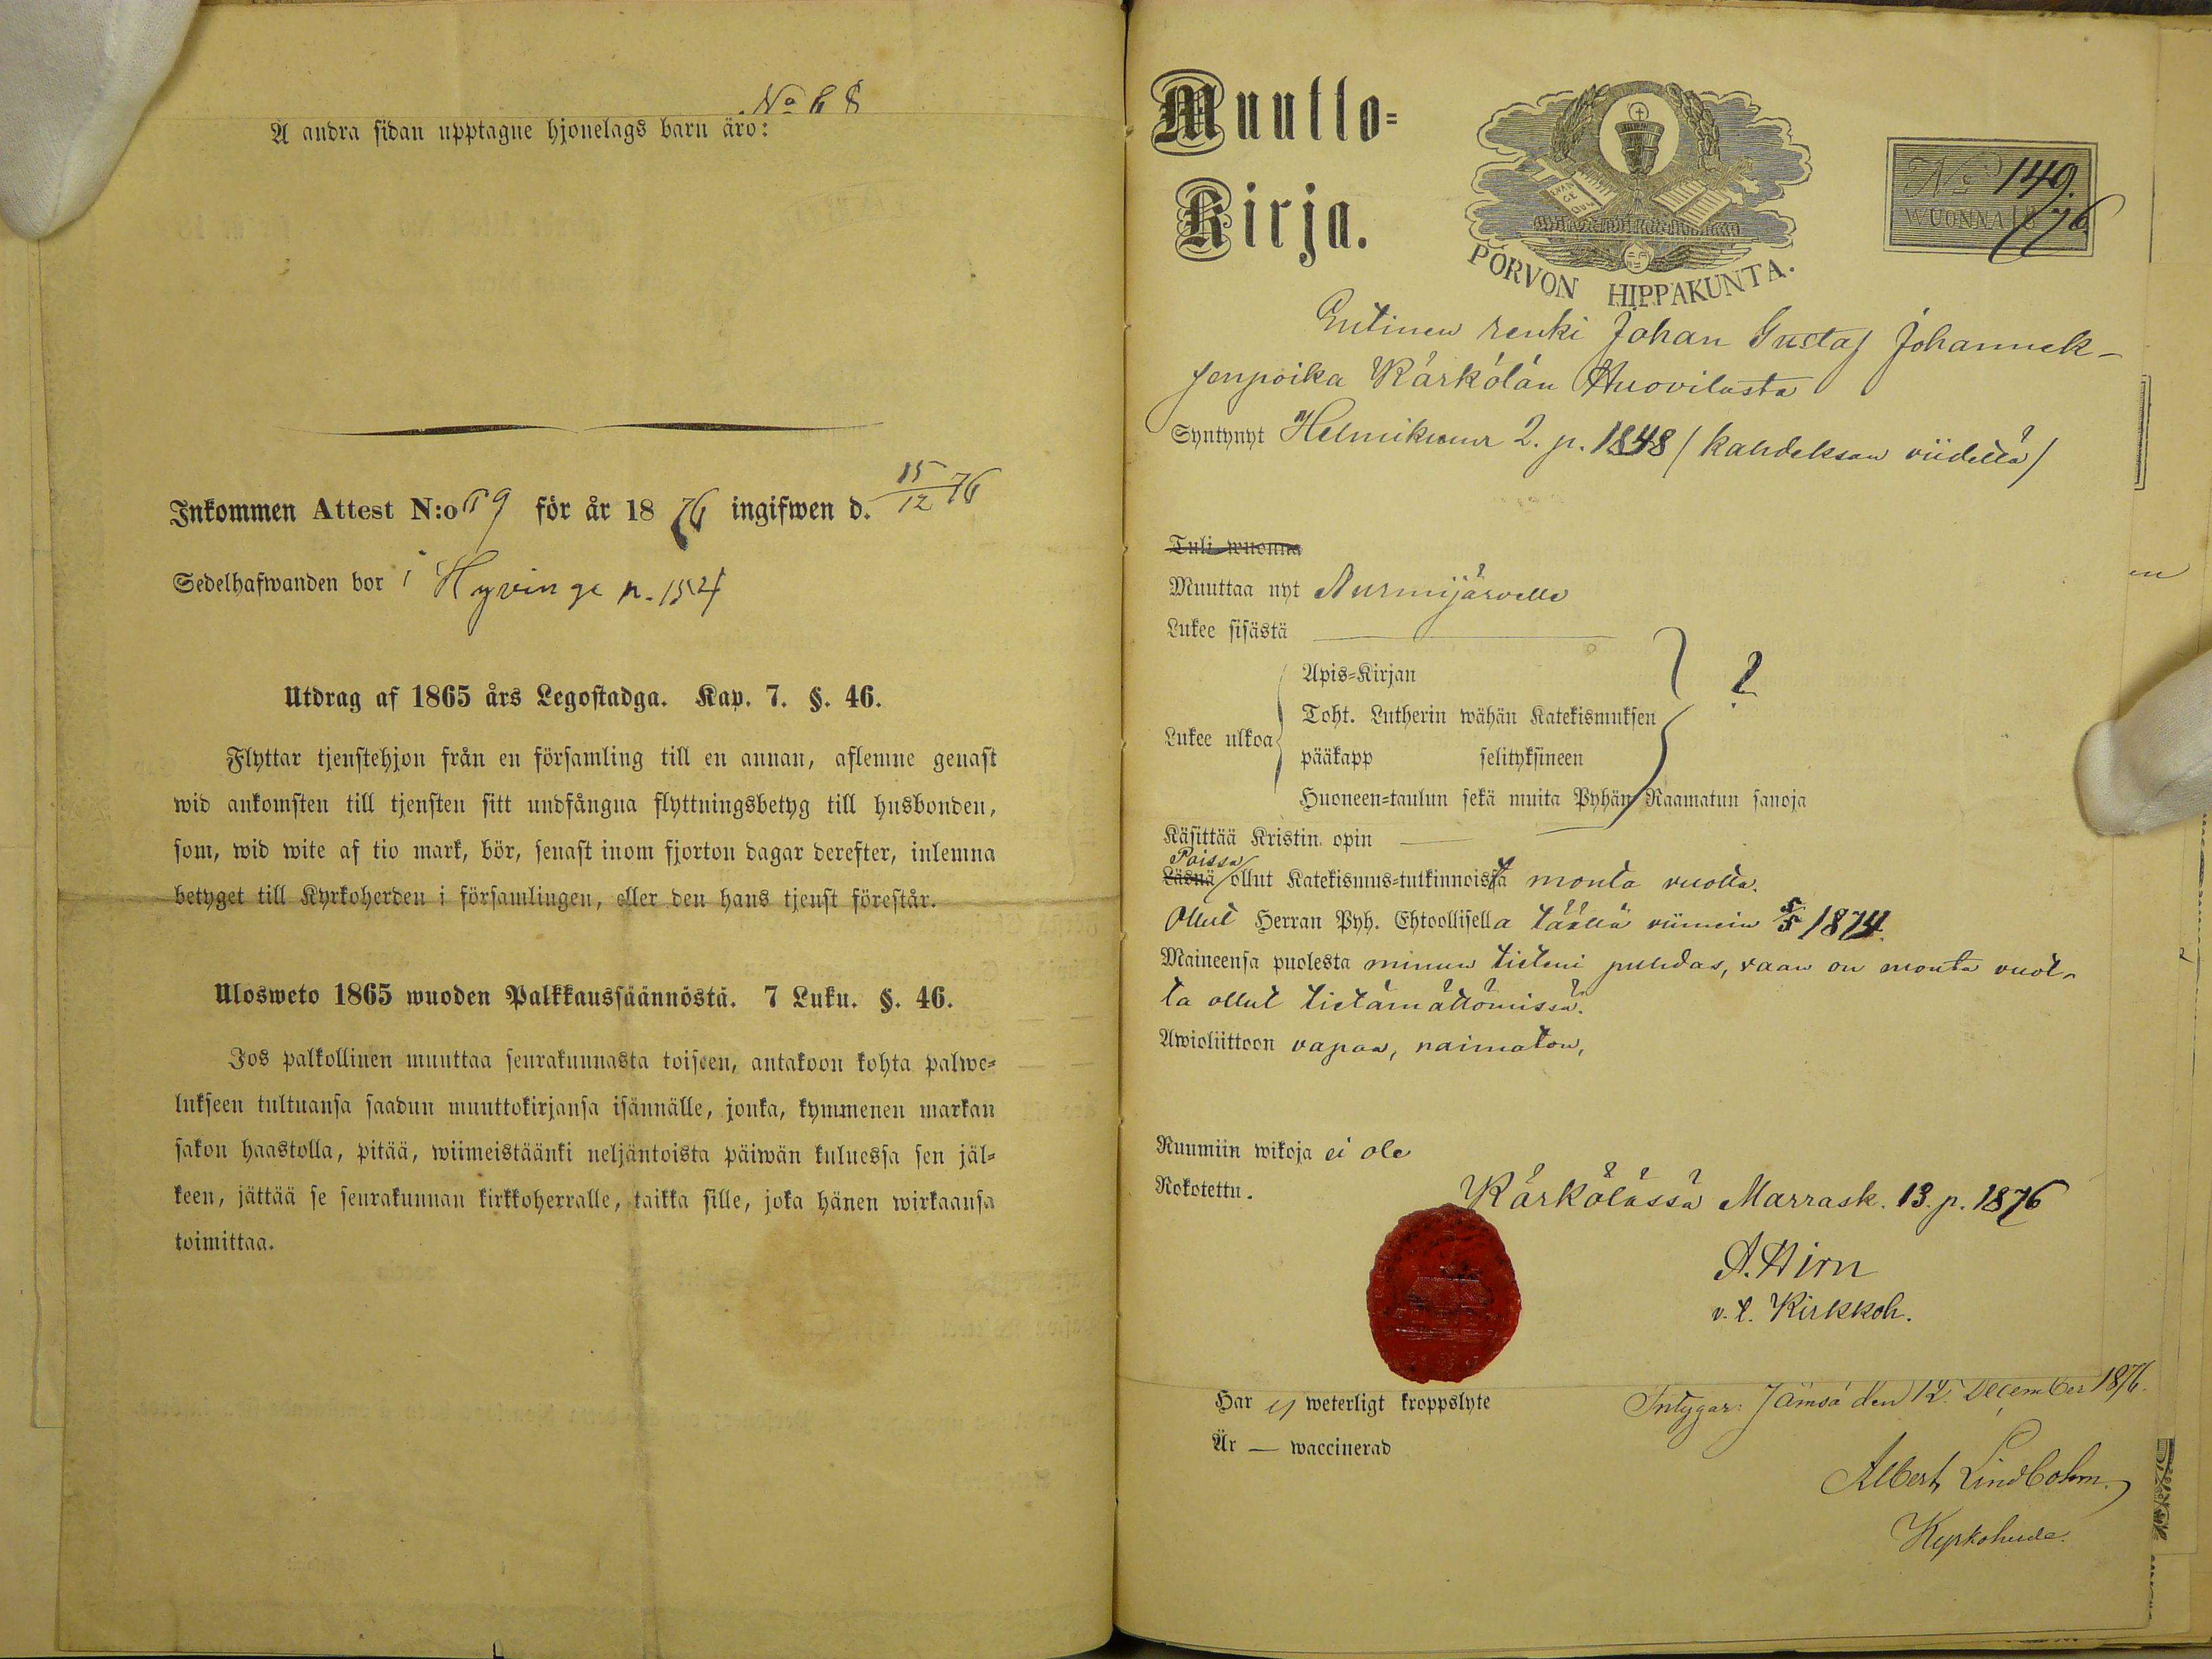 No 68
Å andra sidan upptagne hjonelags barn äro:
Inkommen Attest N:o 69 för år 1876 ingifwen d. 15/12 76
Sedelhafwanden bor i Hyvinge n. 154
Utdrag af 1865 års Legostadga. Kap. 7. §. 46.
Flyttar tjenstehjon från en församling till en annan, aflemne genast
wid ankomsten till tjensten sitt undfångna flyttningsbetyg till husbonden,
som, wid wite af tio mark, bör, senast inom fjorton dagar derefter, inlemna
betyget till Kyrkoherden i församlingen, eller den hans tjenst förestår.
Ulosweto 1865 wuoden Palkkaussäännöstä. 7 Luku. §. 46.
Jos palkollinen muuttaa seurakunnasta toiseen, antakoon kohta palwe=
lukseen tultuansa saadun muuttokirjansa isännälle, jonka, kymmenen markan
sakon haastolla, pitää, wiimeistäänki neljäntoista päiwän kuluessa sen jäl=
keen, jättää se seurakunnan kirkkoherralle, taikka sille, joka hänen wirkaansa
toimittaa.
Muutto=
Kirja.
PORVON HIPPAKUNTA.
No 149.
WUONNA 1876.
Entinen renki Johan Gustaf Johannek-
senpoika Kärkölän Huovilasta
Syntynyt Helmikuun 2. p. 1848 / kahdeksan viidettä /
Tuli wuonna
Muuttaa nyt Nurmijärvelle
Lukee sisästä
Lukee ulkoa
Apis=Kirjan
Toht. Lutherin wähän Katekismuksen
pääkapp selityksineen
?
Huoneen=taulun sekä muita Pyhän Raamatun sanoja
Käsittää Kristin. opin
Poissa
Läsnä ollut Katekismus=tutkinnoista monta vuotta.
Ollut Herran Pyh. Ehtoollisella täällä viimein 5/5 1874.
Maineensa puolesta minun tieteni puhdas, vaan on monta vuot-
ta ollut tietämättömissä.
Awioliittoon vapaa, naimaton,
Ruumiin wikoja ei ole
Rokotettu.
Kärkölässä Marrask. 13. p. 1876
A. Hirn
v. t. Kirkkoh.
Har ej weterligt kroppslyte
Är — waccinerad
Intygar: Jämsä den 12. December 1876.
Albert Lindbohm.
Kyrkoherde.